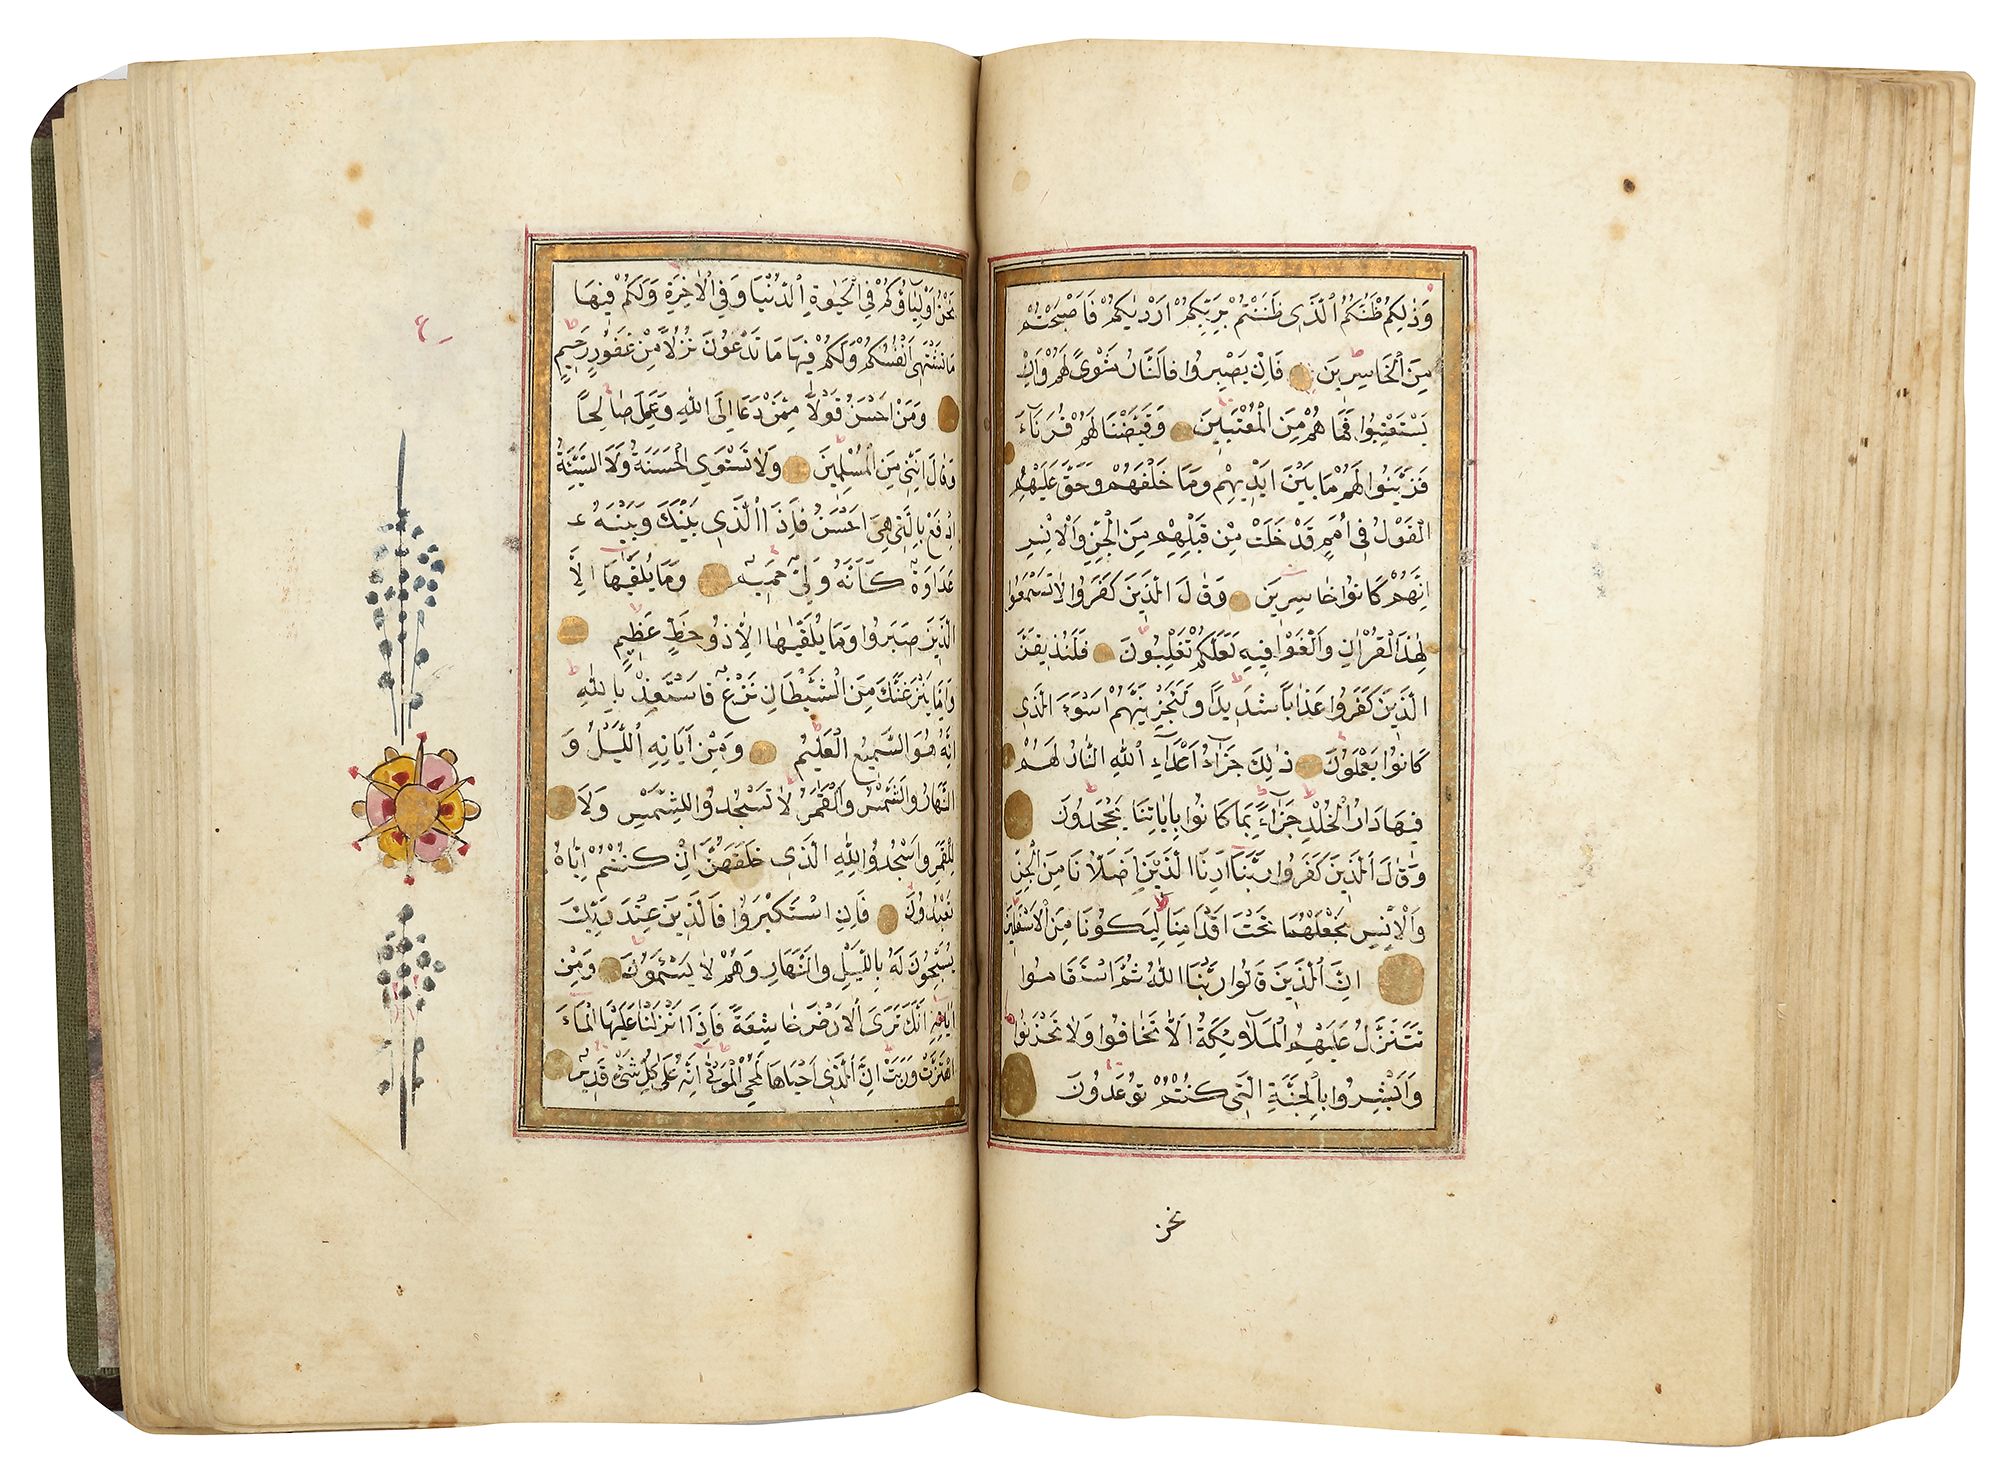 وَذٰلِكُمْ ظَنُّكُمُ الَّذٖي ظَنَنْتُمْ بِرَبِّكُمْ اَرْدٰيكُمْ فَاَصْبَحْتُمْ
مِنَ الْخَاسِرٖينَ فَاِنْ يَصْبِرُوا فَالنَّارُ مَثْوًى لَهُمْ وَاِنْ
يَسْتَعْتِبُوا فَمَا هُمْ مِنَ الْمُعْتَبٖينَ وَقَيَّضْنَا لَهُمْ قُرَنَاءَ
فَزَيَّنُوا لَهُمْ مَا بَيْنَ اَيْدٖيهِمْ وَمَا خَلْفَهُمْ وَحَقَّ عَلَيْهِمُ
الْقَوْلُ فٖي اُمَمٍ قَدْ خَلَتْ مِنْ قَبْلِهِمْ مِنَ الْجِنِّ وَالْاِنْسِ
اِنَّهُمْ كَانُوا خَاسِرٖينَ وَقَالَ الَّذٖينَ كَفَرُوا لَا تَسْمَعُوا
لِهٰذَا الْقُرْاٰنِ وَالْغَوْا فٖيهِ لَعَلَّكُمْ تَغْلِبُونَ فَلَنُذٖيقَنَّ
الَّذٖينَ كَفَرُوا عَذَابًا شَدٖيدًا وَلَنَجْزِيَنَّهُمْ اَسْوَءَ الَّذٖي
كَانُوا يَعْمَلُونَ ذٰلِكَ جَزَاءُ اَعْدَاءِ اللّٰهِ النَّارُ لَهُمْ
فٖيهَا دَارُ الْخُلْدِ جَزَاءً بِمَا كَانُوا بِاٰيَاتِنَا يَجْحَدُونَ
وَقَالَ الَّذٖينَ كَفَرُوا رَبَّنَا اَرِنَا الَّذَيْنِ اَضَلَّانَا مِنَ الْجِنِّ
وَالْاِنْسِ نَجْعَلْهُمَا تَحْتَ اَقْدَامِنَا لِيَكُونَا مِنَ الْاَسْفَلٖينَ
اِنَّ الَّذٖينَ قَالُوا رَبُّنَا اللّٰهُ ثُمَّ اسْتَقَامُوا
تَتَنَزَّلُ عَلَيْهِمُ الْمَلٰٓئِكَةُ اَلَّا تَخَافُوا وَلَا تَحْزَنُوا
وَاَبْشِرُوا بِالْجَنَّةِ الَّتٖي كُنْتُمْ تُوعَدُونَ
نحن
نَحْنُ اَوْلِيَاؤُكُمْ فِي الْحَيٰوةِ الدُّنْيَا وَفِي الْاٰخِرَةِ وَلَكُمْ فٖيهَا
مَا تَشْتَهٖي اَنْفُسُكُمْ وَلَكُمْ فٖيهَا مَا تَدَّعُونَ نُزُلًا مِنْ غَفُورٍ رَحٖيمٍ
وَمَنْ اَحْسَنُ قَوْلًا مِمَّنْ دَعَا اِلَى اللّٰهِ وَعَمِلَ صَالِحًا
وَقَالَ اِنَّنٖي مِنَ الْمُسْلِمٖينَ وَلَا تَسْتَوِي الْحَسَنَةُ وَلَا السَّيِّئَةُ
اِدْفَعْ بِالَّتٖي هِيَ اَحْسَنُ فَاِذَا الَّذٖي بَيْنَكَ وَبَيْنَهُ
عَدَاوَةٌ كَاَنَّهُ وَلِيٌّ حَمٖيمٌ وَمَا يُلَقّٰيهَا اِلَّا
الَّذٖينَ صَبَرُوا وَمَا يُلَقّٰيهَا اِلَّا ذُو حَظٍّ عَظٖيمٍ
وَاِمَّا يَنْزَغَنَّكَ مِنَ الشَّيْطَانِ نَزْغٌ فَاسْتَعِذْ بِاللّٰهِ
اِنَّهُ هُوَ السَّمٖيعُ الْعَلٖيمُ وَمِنْ اٰيَاتِهِ الَّيْلُ وَ
النَّهَارُ وَالشَّمْسُ وَالْقَمَرُ لَا تَسْجُدُوا لِلشَّمْسِ وَلَا
لِلْقَمَرِ وَاسْجُدُوا لِلّٰهِ الَّذٖي خَلَقَهُنَّ اِنْ كُنْتُمْ اِيَّاهُ
تَعْبُدُونَ فَاِنِ اسْتَكْبَرُوا فَالَّذٖينَ عِنْدَ رَبِّكَ
يُسَبِّحُونَ لَهُ بِالَّيْلِ وَالنَّهَارِ وَهُمْ لَا يَسْئَمُونَ وَمِنْ
اٰيَاتِهِ اَنَّكَ تَرَى الْاَرْضَ خَاشِعَةً فَاِذَا اَنْزَلْنَا عَلَيْهَا الْمَاءَ
اهْتَزَّتْ وَرَبَتْ اِنَّ الَّذٖي اَحْيَاهَا لَمُحْيِي الْمَوْتٰى اِنَّهُ عَلٰى كُلِّ شَيْءٍ قَدٖيرٌ